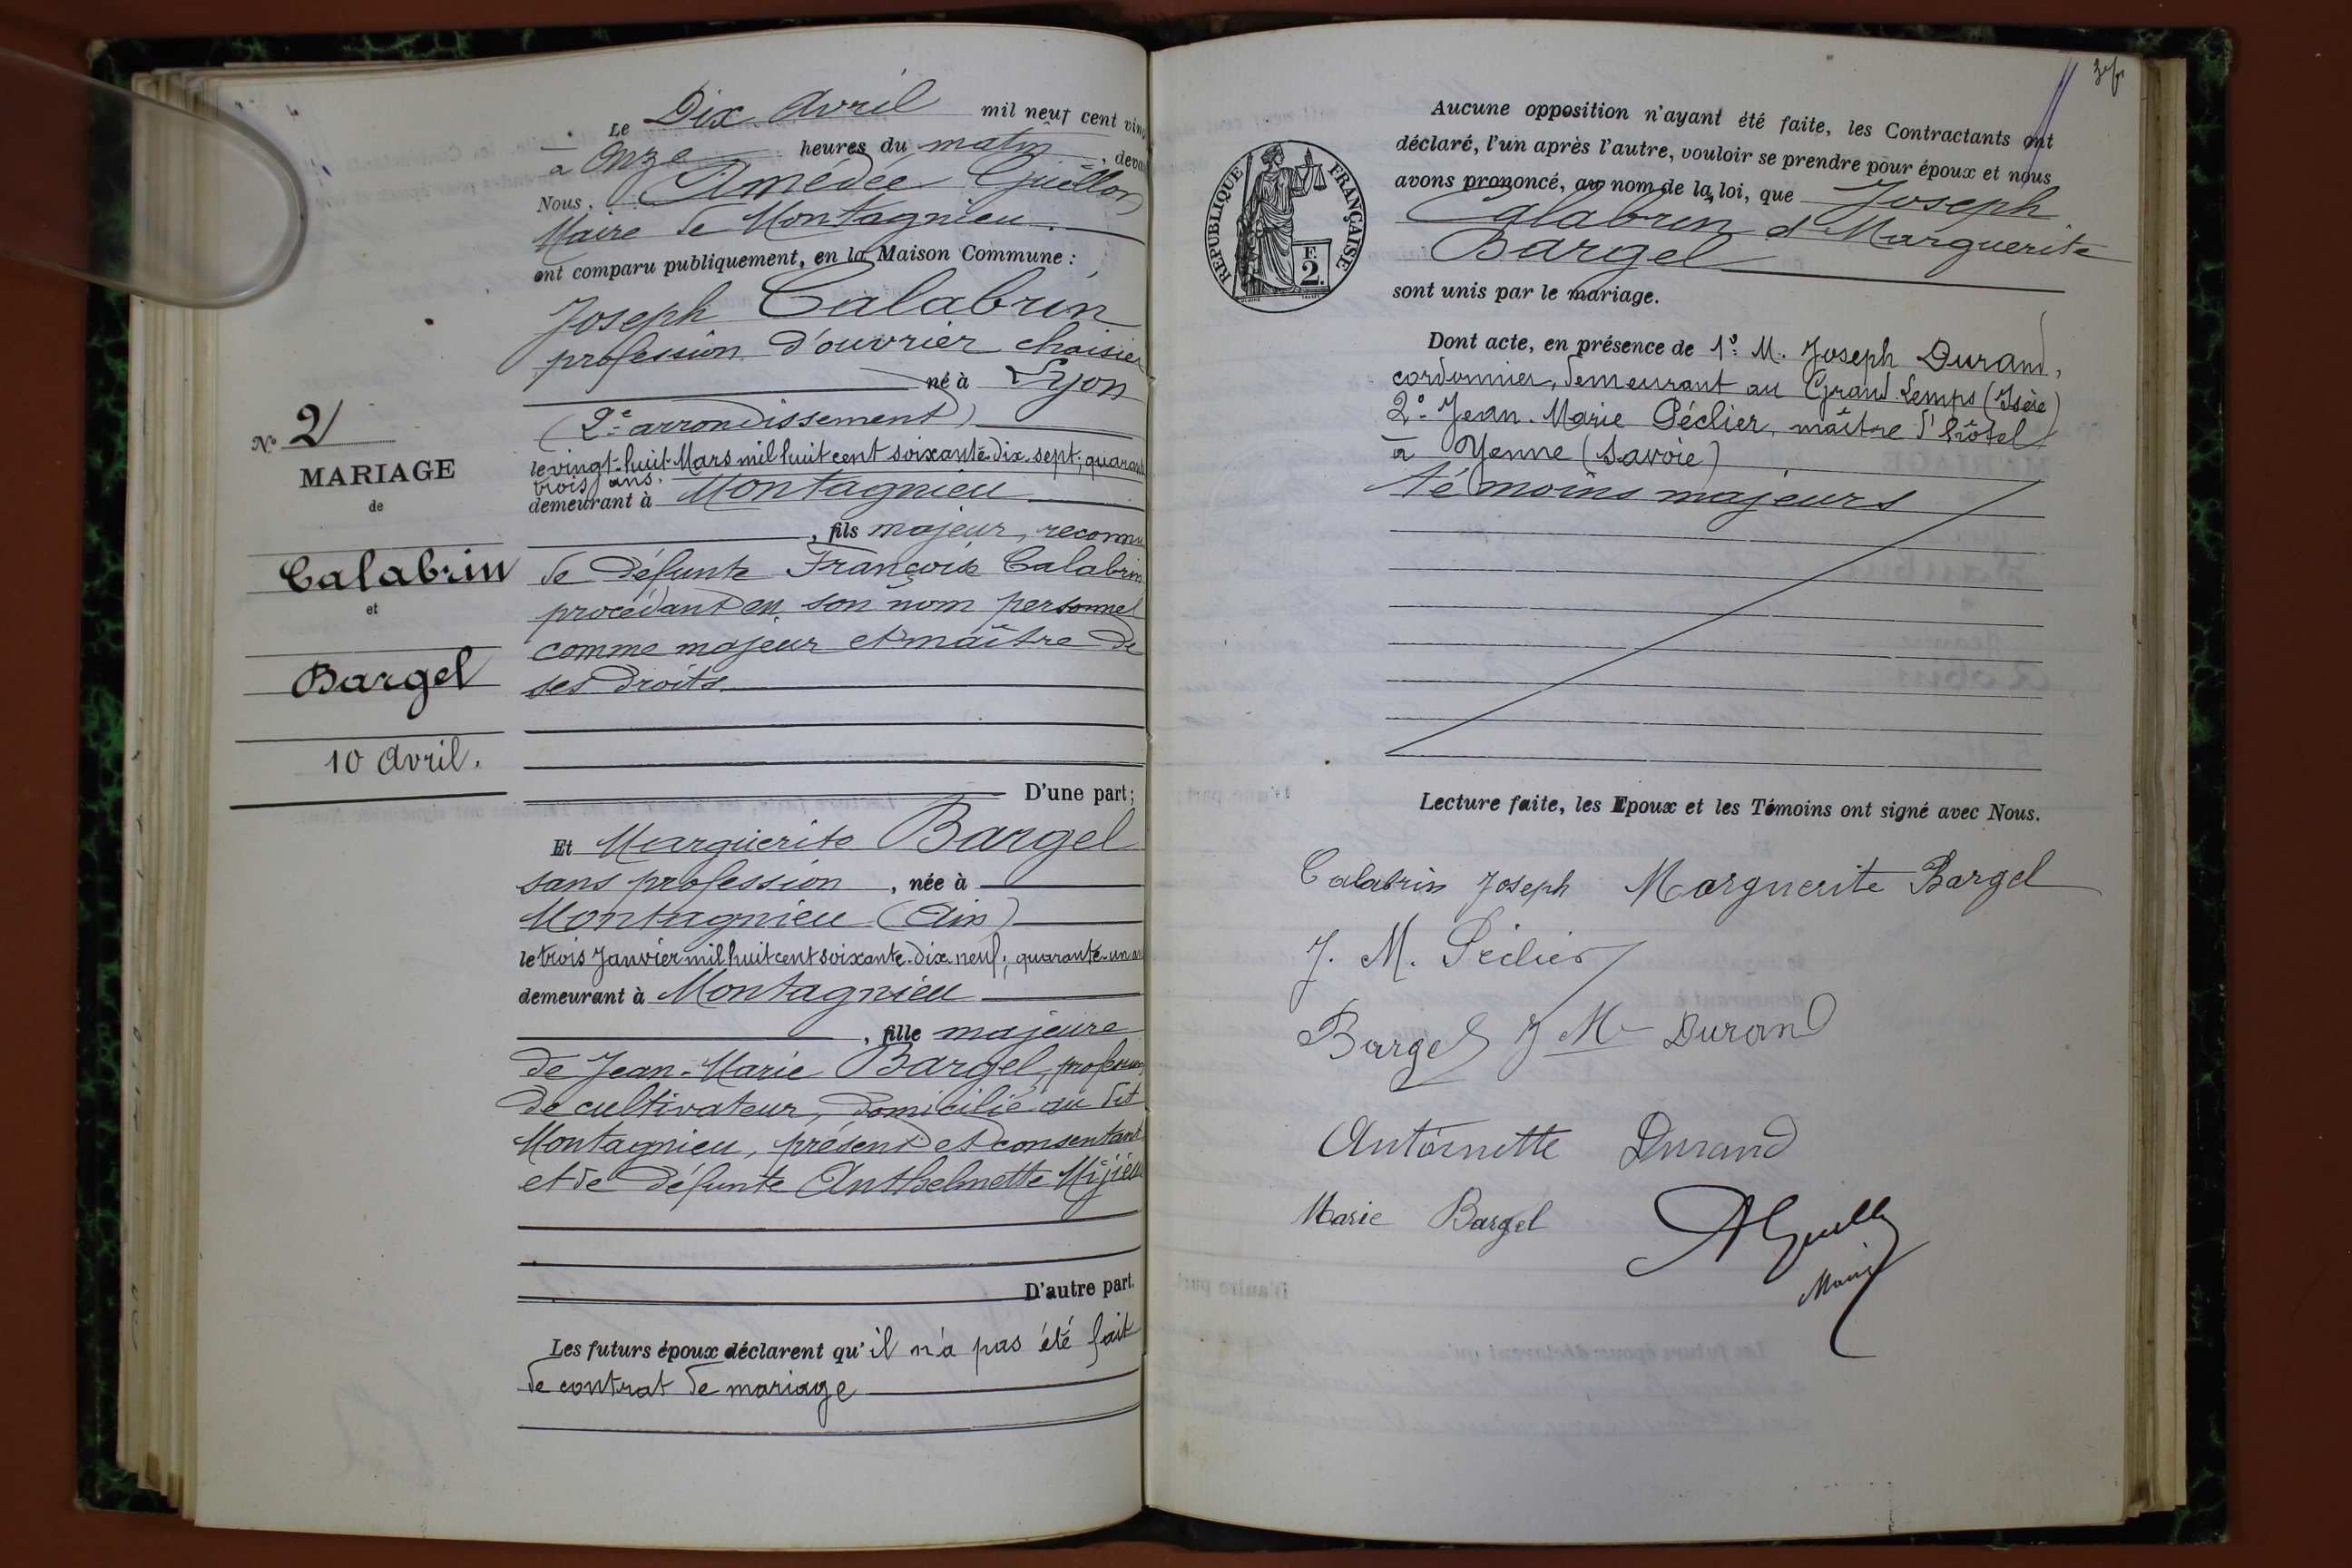 N° 2
MARIAGE
de
Calabrin
et
Bargel
10 Avril.
Le Dix Avril mil neuf cent
à Onze heures du matin,
Nous, Amédée Guillon
Maire de Montagnieu.
ont comparu publiquement, en la Maison Commune :
Joseph Calabrin
profession d'ouvrier chaisier
né à Lyon
(2e arrondissement)
le vingt-huit Mars mil huit cent soixante-dix-sept;
trois ans.
demeurant à Montagnieu
, fils majeur, reconnu
de défunte Françoise Calabrin
procédant en son nom personnel
comme majeur et maître de
ses droits.
D'une part;
Et Marguerite Bargel
sans profession, née à
Montagnieu (Ain)
le trois Janvier mil huit cent soixante-dix-neuf; quarante-un
demeurant à Montagnieu
, fille majeure
de Jean-Marie Bargel, profession
de cultivateur, domicilié au dit
Montagnieu, présent et consentant
et de défunte Anthelmette
D'autre part.
Les futurs époux déclarent qu'il n'a pas été fait
de contrat de mariage
Aucune opposition n'ayant été faite, les Contractants ont
déclaré, l'un après l'autre, vouloir se prendre pour époux et nous
avons prononcé, au nom de la loi, que Joseph
Calabrin et Marguerite
Bargel
sont unis par le mariage.
RÉPUBLIQUE FRANÇAISE
E
2.
Dont acte, en présence de 1° M. Joseph Durand,
cordonnier, demeurant au Grand Lemps (Isère)
2° Jean-Marie Péclier, maître d'hôtel
à Yenne (Savoie)
témoins majeurs
Lecture faite, les Epoux et les Témoins ont signé avec Nous.
Calabrin Joseph Marguerite Bargel
J. M. Péclier
Bargel J M Durand
Antoinette Durand
Marie Bargel
Maire